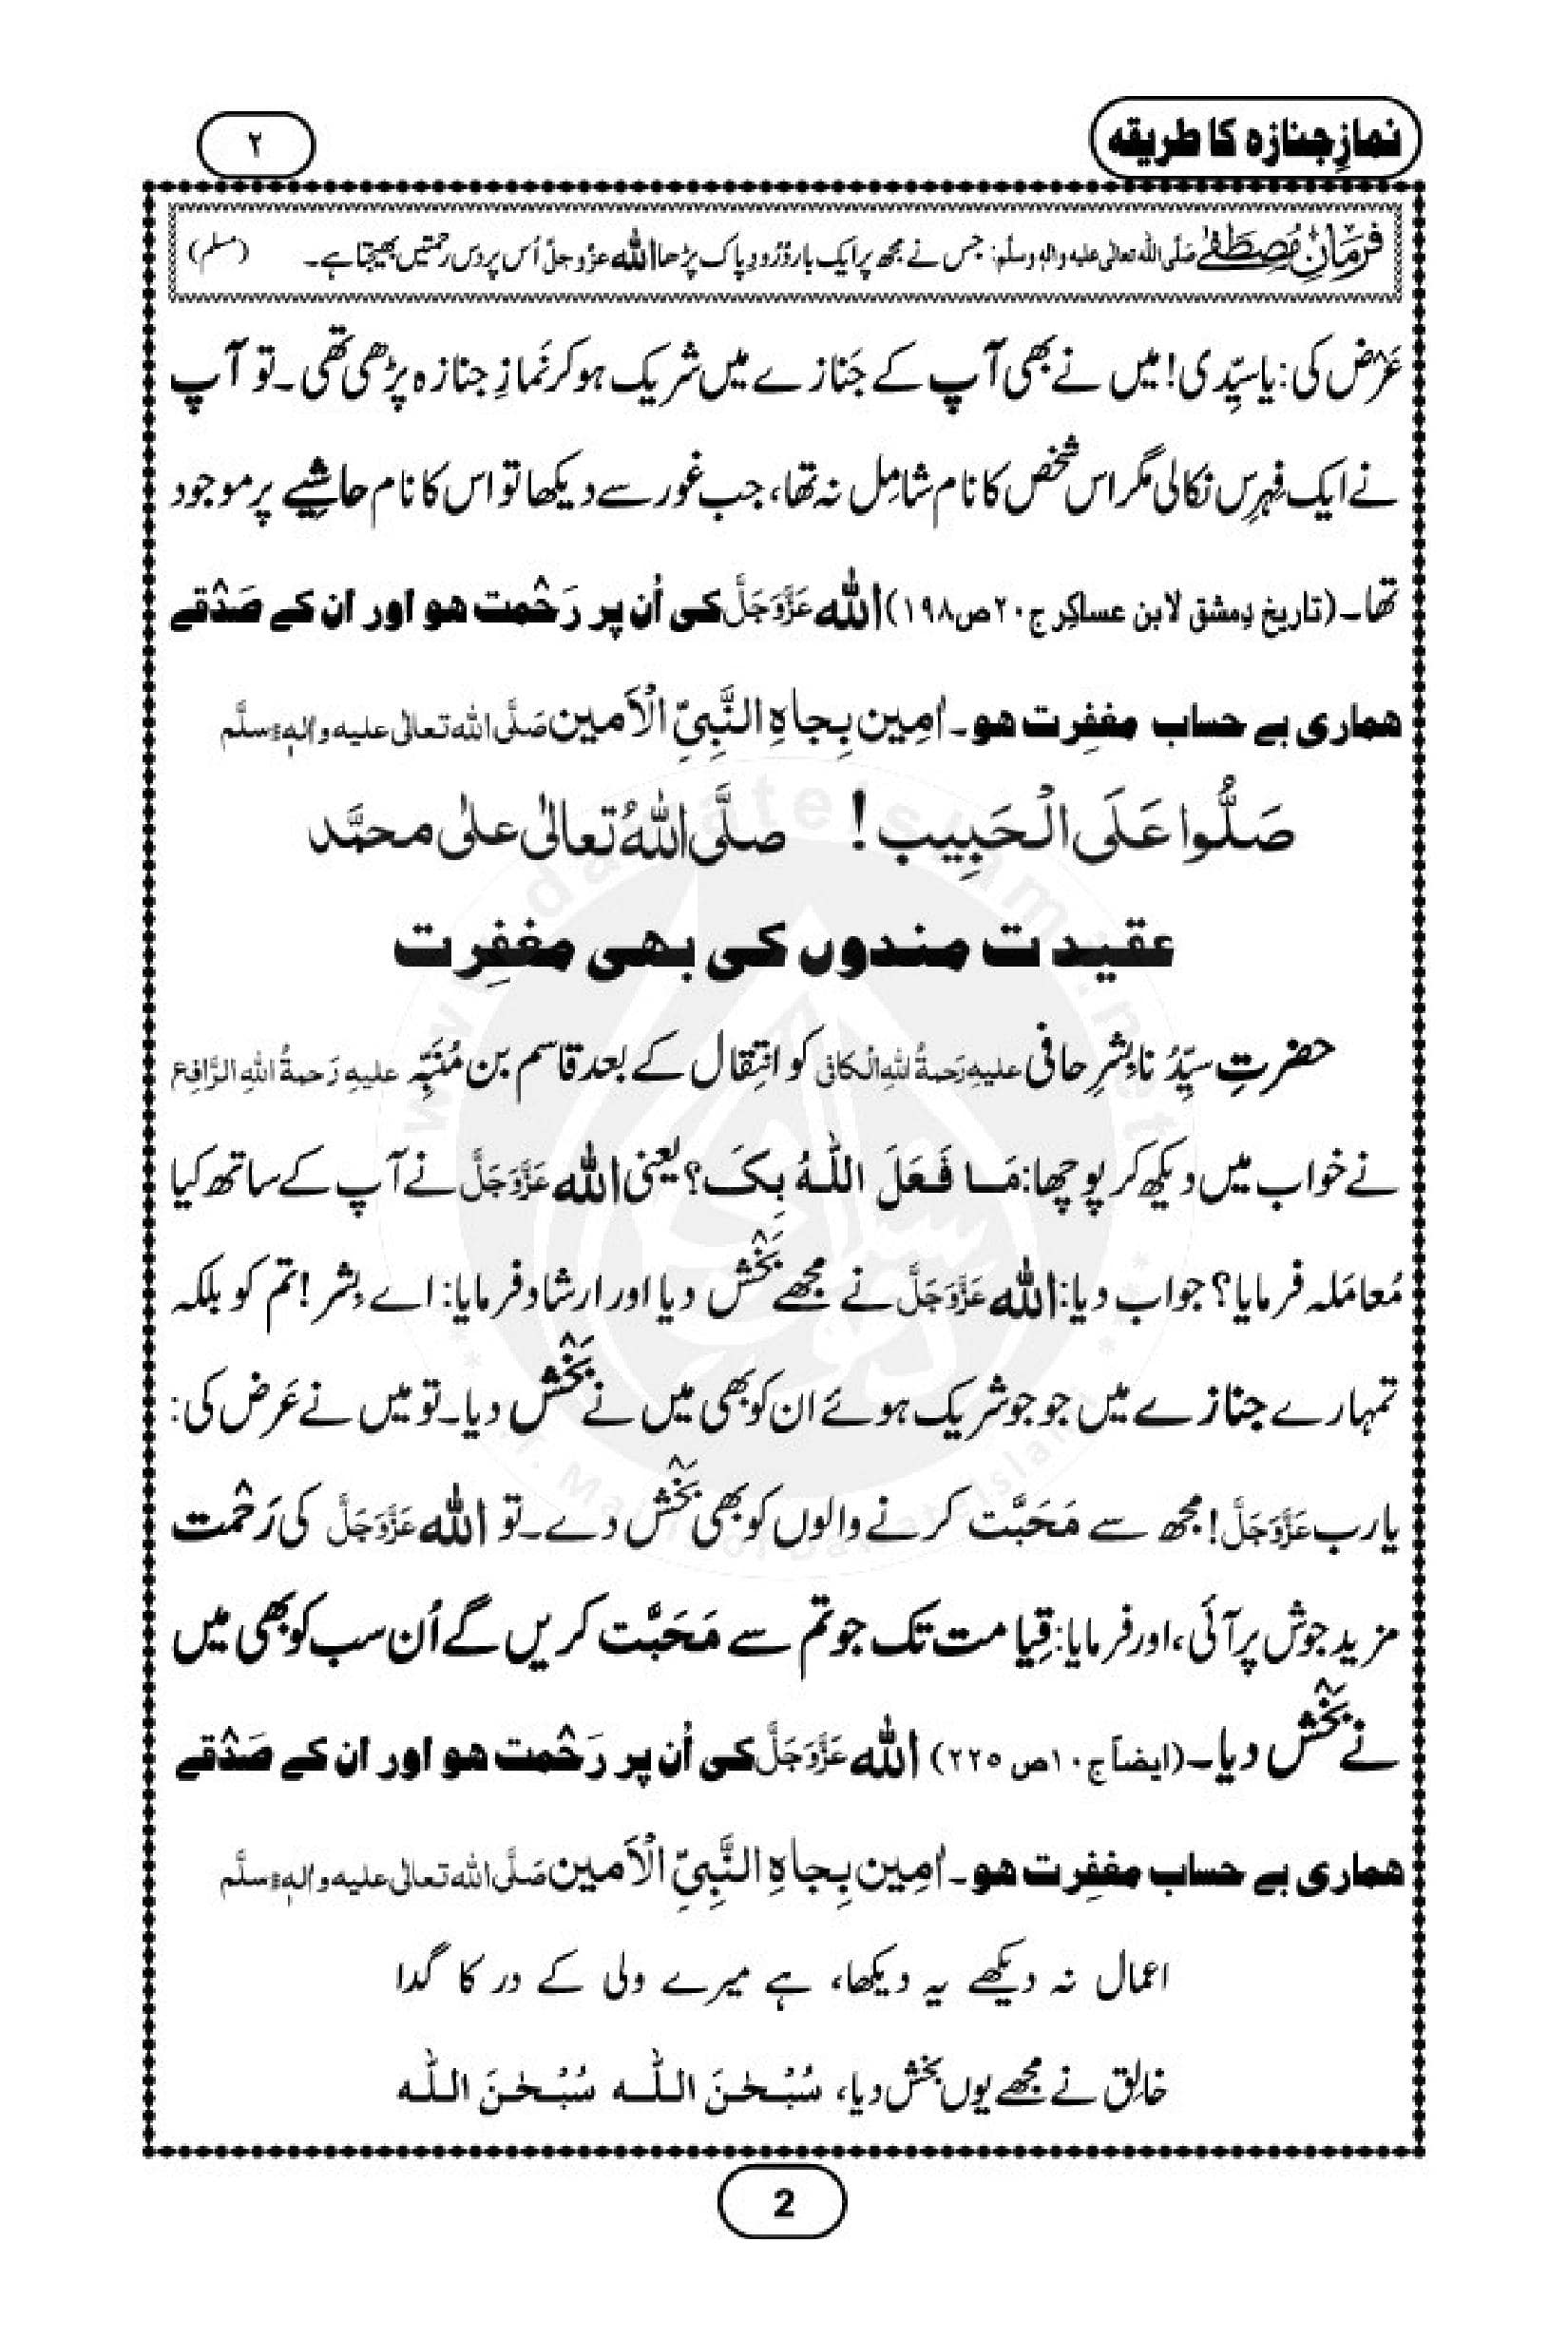 نمازِ جنازہ کا طریقہ
۲
فرمانِ مصطفٰے صلَّی اللہ تعالٰی علیہ واٰلہٖ وسلَّم: جس نے مجھ پر ایک بار دُرُودِ پاک پڑھا اللہ عزَّوجلَّ اُس پر دس رحمتیں بھیجتا ہے۔ (مسلم)
عَرْض کی: یا سیِّدی! میں نے بھی آپ کے جَنازے میں شریک ہو کر نَمازِ جنازہ پڑھی تھی۔ تو آپ
نے ایک فِہرِس نکالی مگر اس شخص کا نام شامِل نہ تھا، جب غور سے دیکھا تو اس کا نام حاشیے پر موجود
تھا۔ (تاریخ دِمشق لابن عساکِر ج۲۰ ص۱۹۸) اللہ عَزَّوَجَلَّ کی اُن پر رَحْمت ھو اور ان کے صَدْقے
ھماری بے حساب مغفِرت ھو۔ اٰمِین بِجاہِ النَّبِیِّ الْاَمین صَلَّی اللہ تعالٰی علیہ واٰلہٖ وسلَّم
صَلُّوا عَلَی الْحَبِیب! صلَّی اللہُ تعالٰی علٰی محمَّد
عقیدت مندوں کی بھی مغفِرت
حضرتِ سیِّدُنا بِشرِ حافی علیہ رَحمۃُ اللہِ الْکافی کو انتِقال کے بعد قاسم بن مُنَبِّہ علیہ رَحمۃُ اللہِ الرَّافِع
نے خواب میں دیکھ کر پوچھا: مَا فَعَلَ اللہُ بِکَ؟ یعنی اللہ عَزَّوَجَلَّ نے آپ کے ساتھ کیا
مُعامَلہ فرمایا؟ جواب دیا: اللہ عَزَّوَجَلَّ نے مجھے بَخْش دیا اور ارشاد فرمایا: اے بِشر! تم کو بلکہ
تمہارے جنازے میں جو جو شریک ہوئے ان کو بھی میں نے بَخْش دیا۔ تو میں نے عَرض کی:
یا رب عَزَّوَجَلَّ! مجھ سے مَحَبَّت کرنے والوں کو بھی بَخْش دے۔ تو اللہ عَزَّوَجَلَّ کی رَحْمت
مزید جوش پر آئی، اور فرمایا: قِیامت تک جو تم سے مَحَبَّت کریں گے اُن سب کو بھی میں
نے بَخْش دیا۔ (ایضاً ج۱۰ ص ۲۲۵) اللہ عَزَّوَجَلَّ کی اُن پر رَحْمت ھو اور ان کے صَدْقے
ھماری بے حساب مغفِرت ھو۔ اٰمِین بِجاہِ النَّبِیِّ الْاَمین صَلَّی اللہ تعالٰی علیہ واٰلہٖ وسلَّم
اعمال نہ دیکھے یہ دیکھا، ہے میرے ولی کے در کا گدا
خالِق نے مجھے یوں بخش دیا، سُبْحٰنَ اللہ سُبْحٰنَ اللہ
2